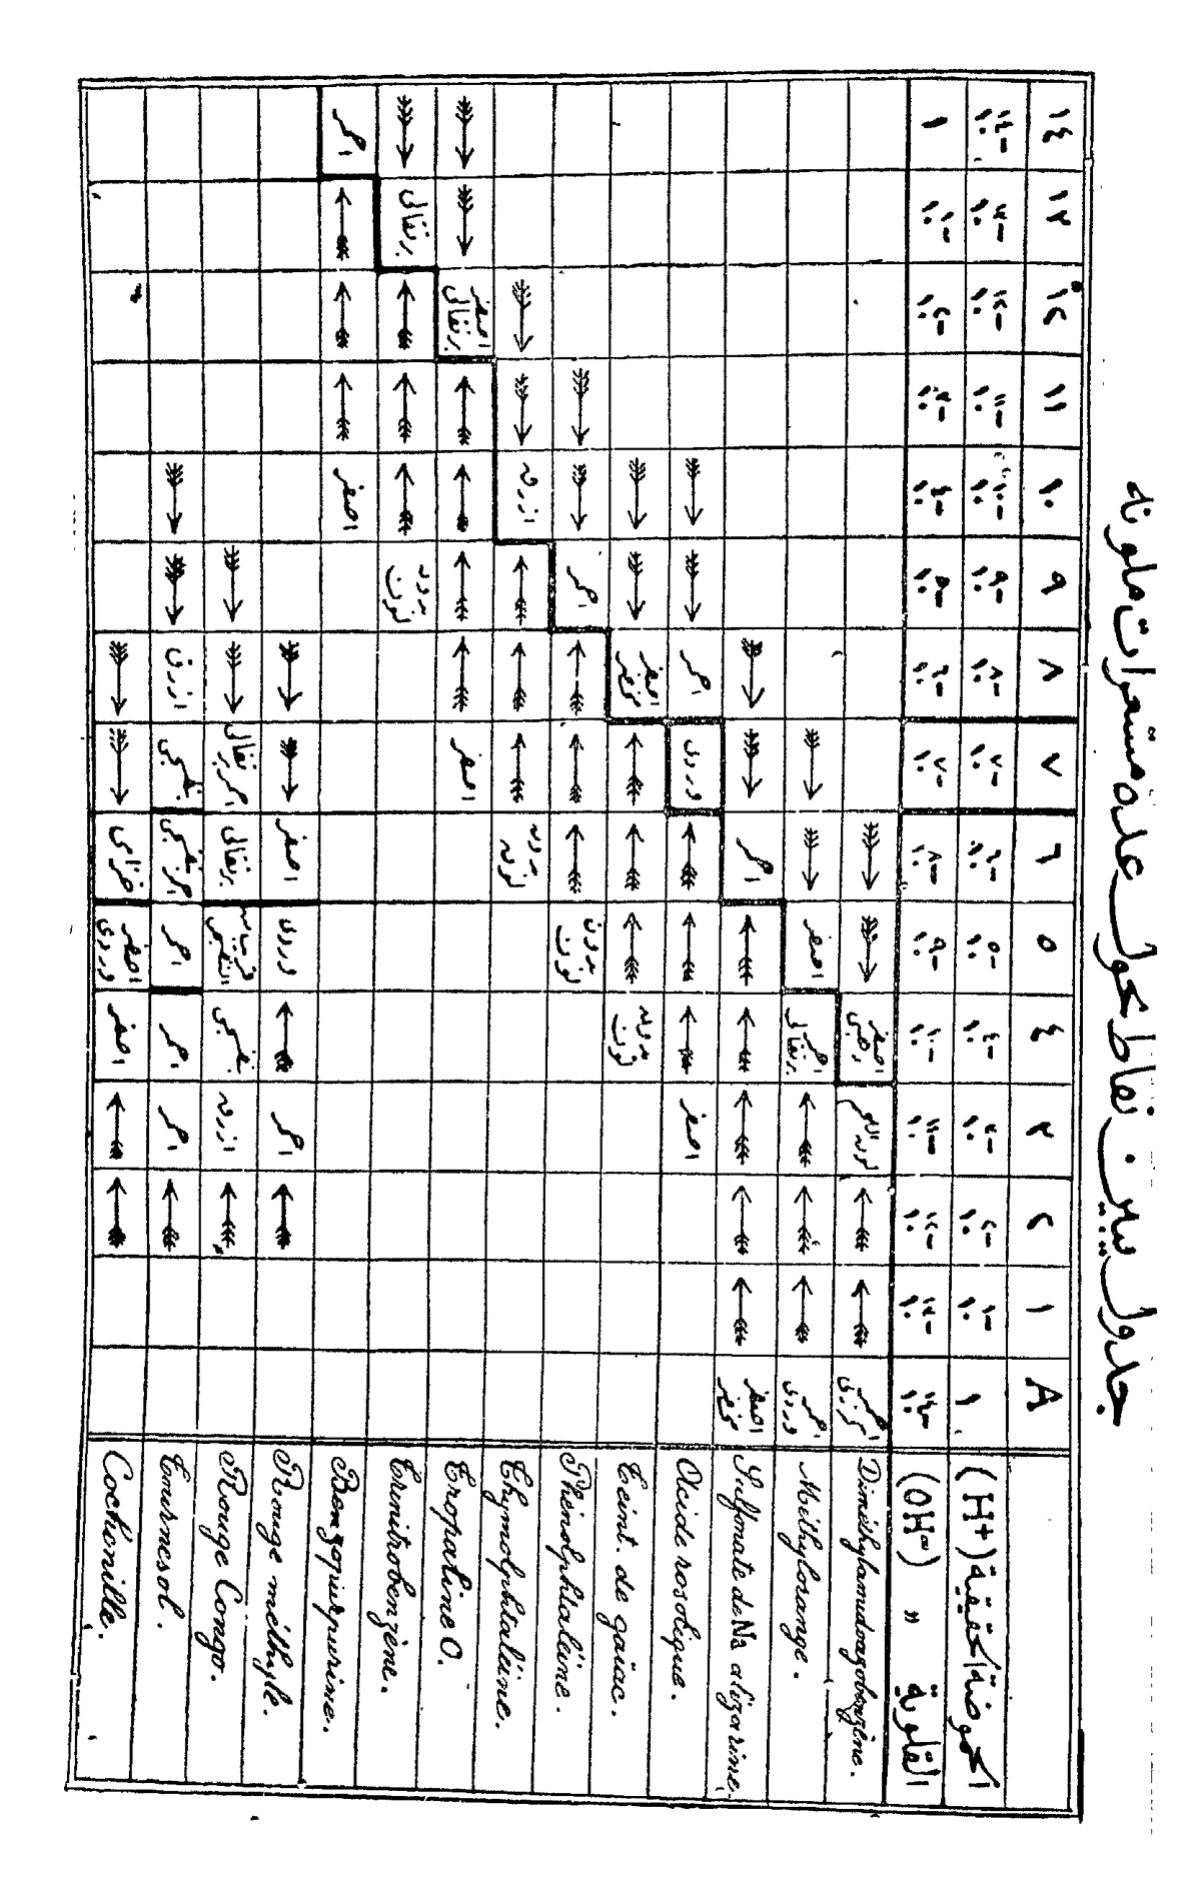 جدول يبين نقاط تحول عدة مشعرات ملونة
A ١ ٢ ٣ ٤ ٥ ٦ ٧ ٨ ٩ ١٠ ١١ ١٢ ١٣ ١٤
الحموضة الحقيقية (H+) ١ ١٠-١ ١٠-٢ ١٠-٣ ١٠-٤ ١٠-٥ ١٠-٦ ١٠-٧ ١٠-٨ ١٠-٩ ١٠-١٠ ١٠-١١ ١٠-١٢ ١٠-١٣ ١٠-١٤
القلوية " (OH-) ١٠-١٤ ١٠-١٣ ١٠-١٢ ١٠-١١ ١٠-١٠ ١٠-٩ ١٠-٨ ١٠-٧ ١٠-٦ ١٠-٥ ١٠-٤ ١٠-٣ ١٠-٢ ١٠-١ ١
Diméthylamidoazobenzène. احمر كرزي لون اللحم اصفر ذهبي
Méthylorange. احمر وردي احمر برتقالي اصفر
Sulfonate de Na alizarine. اصفر مخضر احمر
Acide rosolique. اصفر وردي احمر
Teint. de gaïac. بدون لون اصفر مخضر
Phénolphtaléine. بدون لون احمر
Thymolphtaléine. بدون لون ازرق
Tropaline O. اصفر اصفر برتقالي
Trinitrobenzène. بدون لون برتقالي
Benzopurpurine. اصفر احمر
Rouge méthyle. احمر وردي اصفر
Rouge Congo. ازرق بنفسجي برتقالي احمر برتقالي
Tournesol. احمر احمر احمر احمر بنفسجي بنفسجي ازرق
Cochenille. اصفر اصفر وردي خزامي